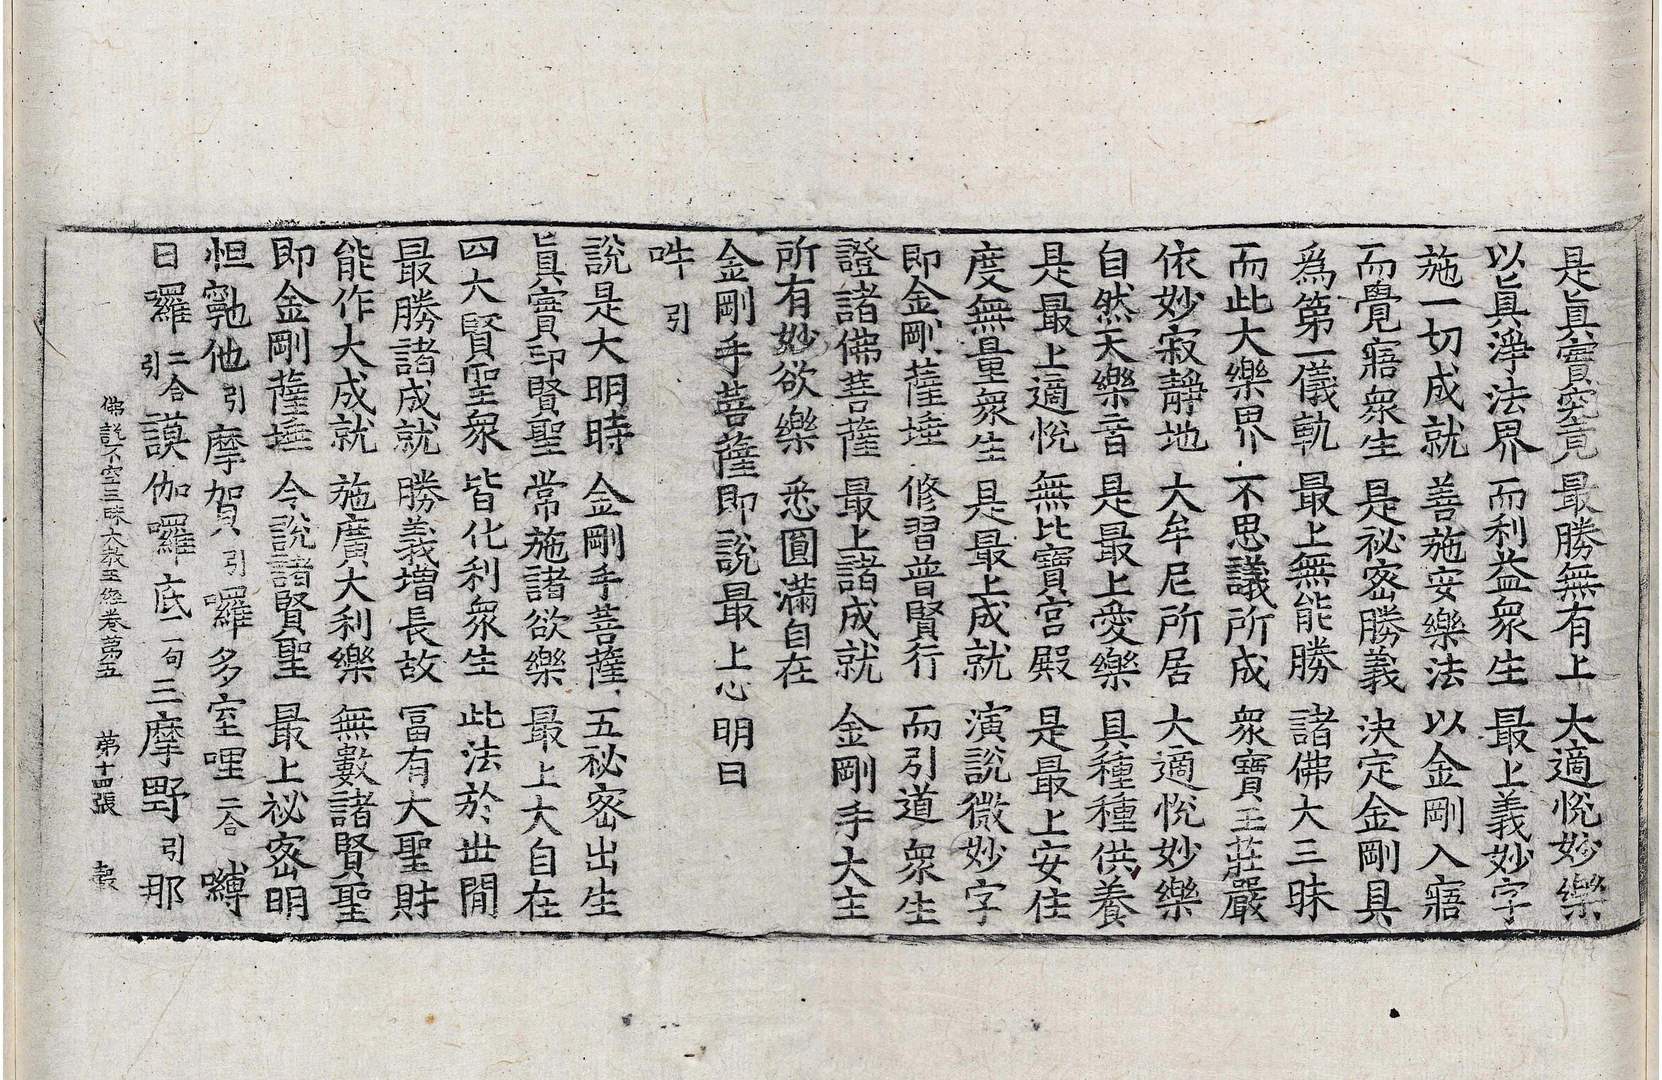 是眞實究竟 最勝無有上 大適悅妙樂
以眞淨法界 而利益衆生 最上義妙字
施一切成就 善施安樂法 以金剛入寤
而覺寤衆生 是祕密勝義 決定金剛具
爲第一儀軌 最上無能勝 諸佛大三昧
而此大樂界 不思議所成 衆寶王莊嚴
依妙寂靜地 大牟尼所居 大適悅妙樂
自然天樂音 是最上愛樂 具種種供養
是最上適悅 無比寶宮殿 是最上安住
度無量衆生 是最上成就 演說微妙字
即金剛薩埵 修習普賢行 而引道衆生
證諸佛菩薩 最上諸成就 金剛手大主
所有妙欲樂 悉圓滿自在
金剛手菩薩即說最上心明曰
吽引
說是大明時 金剛手菩薩 五祕密出生
眞實印賢聖 常施諸欲樂 最上大自在
四大賢聖衆 皆化利衆生 此法於世間
最勝諸成就 勝義增長故 冨有大聖財
能作大成就 施廣大利樂 無數諸賢聖
即金剛薩埵 今說諸賢聖 最上祕密明
怛𪘨他引摩賀引囉多室哩二合嚩
日囉二合引謨伽囉底二句三摩野引那
佛說不空三昧大教王經卷第五 第十四張 𣫍